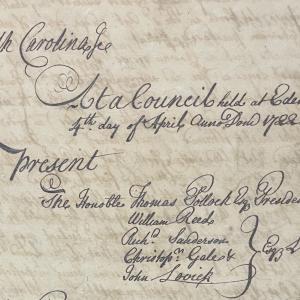 th Carolina Sc
At a Council held at Eden
4th. day of April Anno Dom 1722
present
The Honoble Thomas Pollock Esqr Presiden
William Reed
Richd. Sanderson
Christophr Gale &
John Lovick
Esqrs